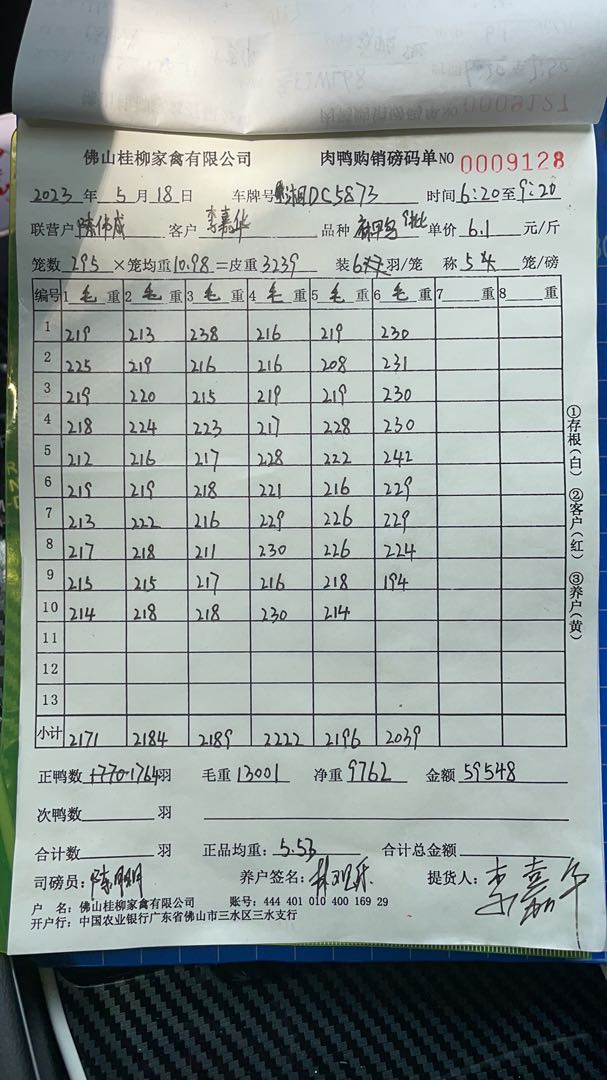 0009127
佛山桂柳家禽有限公司 肉鸭购销磅码单NO 0009128
2023年5月18日 车牌号 湘DC5873 时间6:20至9:20
联营户 陈伟成 客户 李嘉华 品种 单价 6.1 元/斤
笼数 295 ×笼均重10.98=皮重3239 装6 羽/笼 称5 笼/磅
编号 1毛重 2毛重 3毛重 4毛重 5毛重 6毛重 7 重 8 重
1 219 213 238 216 219 230
2 225 219 216 216 208 231
3 219 220 215 219 219 230
4 218 224 223 217 228 230
5 212 216 217 228 222 242
6 219 219 218 221 216 229
7 213 222 216 229 226 229
8 217 218 211 230 226 224
9 215 215 217 216 218 194
10 214 218 218 230 214
11
12
13
小计 2171 2184 2189 2222 2196 2039
①存根(白) ②客户(红) ③养户(黄)
正鸭数 1770 1764羽 毛重 13001 净重 9762 金额 59548
次鸭数 羽
合计数 羽 正品均重: 5.53 合计总金额
司磅员: 陈明明 养户签名: 提货人: 李嘉华
户 名: 佛山桂柳家禽有限公司 账号: 444 401 010 400 169 29
开户行: 中国农业银行广东省佛山市三水区三水支行